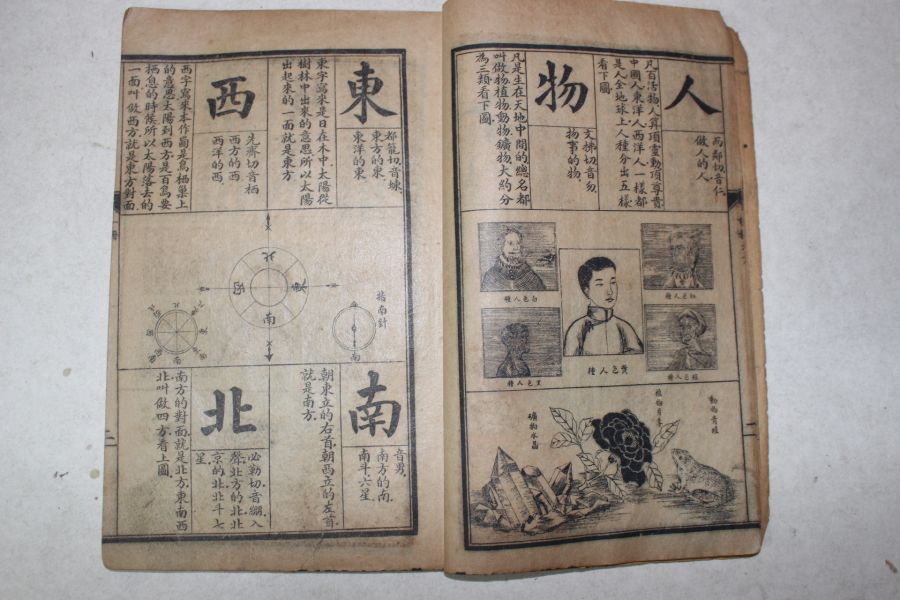 人
而鄰切音仁
做人的人
凡百活物人算頂靈動頂尊貴
中國人東洋人西洋人一樣都
是人全地球上人種分出五樣
看下圖
物
文拂切音勿
物事的物
凡是生在天地中間的總名都
叫做物植物動物鑛物大約分
為三類看下圖
白色人種
紅色人種
黃色人種
黑色人種
棕色人種
動物青蛙
植物牡丹
礦物水晶
二
東
都籠切音蝀
東方的東
東洋的東
東字寫來是日在木中太陽從
樹林中出來的意思所以太陽
出起來的一面就是東方
西
先齊切音棲
西方的西
西洋的西
西字寫來本作𠧧是鳥棲巢上
的意思太陽到西方是百鳥要
栖息的時候所以太陽落去的
一面叫做西方就是東方對面
北
南
指南針
南
音男
南方的南
南斗六星
朝東立的右首朝西立的左首
就是南方
北
必勒切音綳入
聲北方的北北
京的北北斗七
星
南方的對面就是北方東南西
北叫做四方看上圖
二